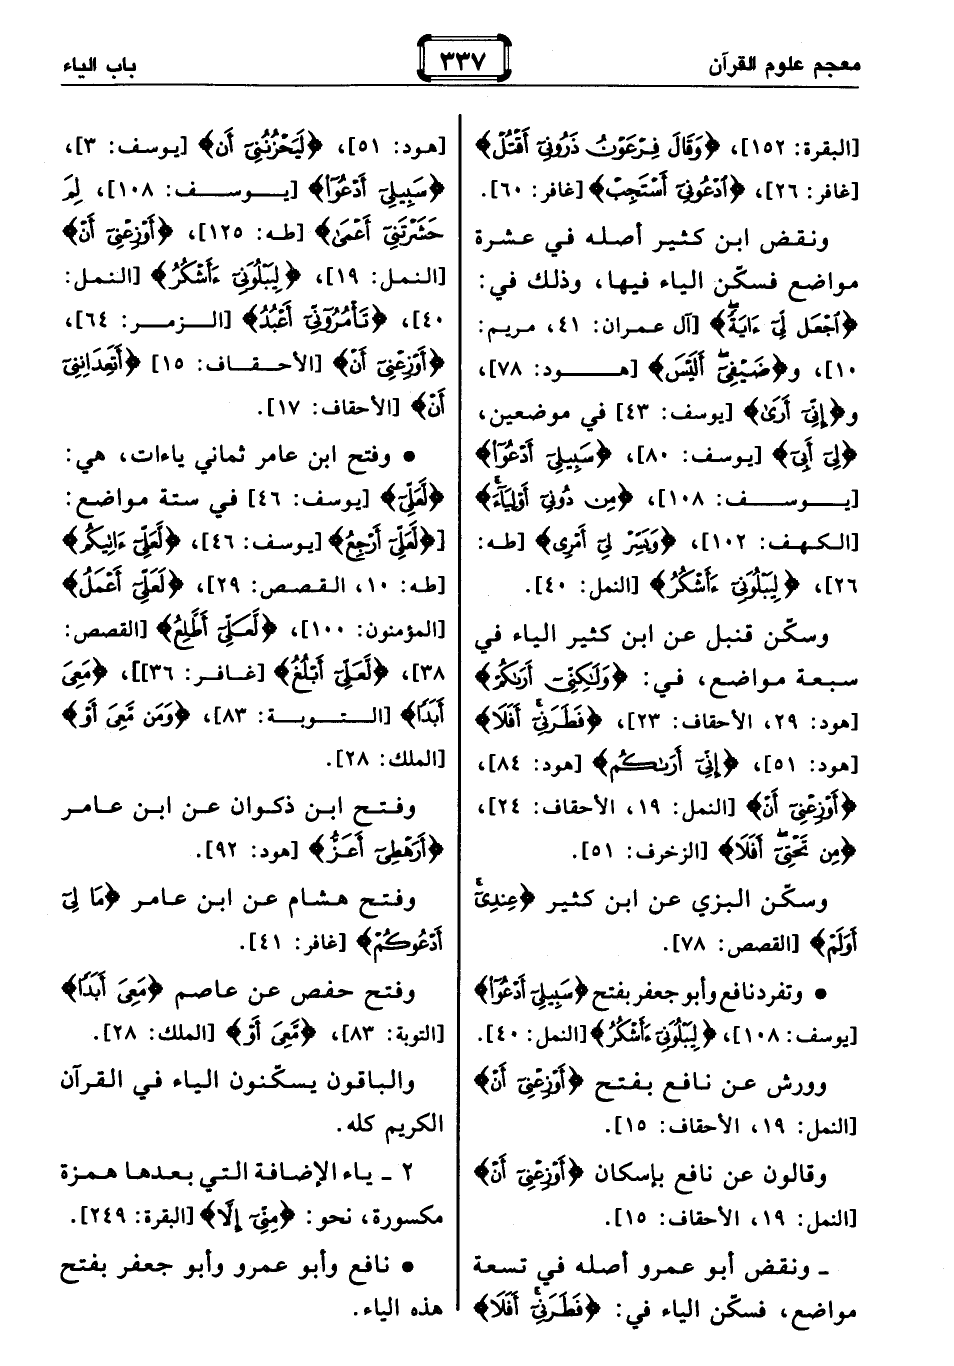 معجم علوم القرآن
٣٣٧
باب الياء
[البقرة: ١٥٢]، ﴿وَقَالَ فِرْعَوْنُ ذَرُونِيٓ أَقْتُلْ﴾
[غافر: ٢٦]، ﴿ٱدْعُونِيٓ أَسْتَجِبْ﴾ [غافر: ٦٠].
ونقض ابن كثير أصله في عشرة
مواضع فسكّن الياء فيها، وذلك في:
﴿ٱجْعَل لِّيٓ ءَايَةً﴾ [آل عمران: ٤١، مريم:
١٠]، و﴿ضَيْفِيٓ أَلَيْسَ﴾ [هود: ٧٨]،
و﴿إِنِّيٓ أَرَىٰ﴾ [يوسف: ٤٣] في موضعين،
﴿لِيٓ أَبِيٓ﴾ [يوسف: ٨٠]، ﴿سَبِيلِيٓ أَدْعُوٓاْ﴾
[يوسف: ١٠٨]، ﴿مِن دُونِيٓ أَوْلِيَآءَ﴾
[الكهف: ١٠٢]، ﴿وَيَسِّرْ لِيٓ أَمْرِي﴾ [طه:
٢٦]، ﴿لِيَبْلُوَنِيٓ ءَأَشْكُرُ﴾ [النمل: ٤٠].
وسكّن قنبل عن ابن كثير الياء في
سبعة مواضع، في: ﴿وَلَٰكِنِّيٓ أَرَىٰكُمْ﴾
[هود: ٢٩، الأحقاف: ٢٣]، ﴿فَطَرَنِيٓ أَفَلَا﴾
[هود: ٥١]، ﴿إِنِّيٓ أَرَىٰكُم﴾ [هود: ٨٤]،
﴿أَوْزِعْنِيٓ أَنْ﴾ [النمل: ١٩، الأحقاف: ٢٤]،
﴿مِن تَحْتِيٓ أَفَلَا﴾ [الزخرف: ٥١].
وسكّن البزي عن ابن كثير ﴿عِندِيٓ
أَوَلَمْ﴾ [القصص: ٧٨].
• وتفرد نافع وأبو جعفر بفتح ﴿سَبِيلِيٓ أَدْعُوٓاْ﴾
[يوسف: ١٠٨]، ﴿لِيَبْلُوَنِيٓ ءَأَشْكُرُ﴾ [النمل: ٤٠].
وورش عن نافع بفتح ﴿أَوْزِعْنِيٓ أَنْ﴾
[النمل: ١٩، الأحقاف: ١٥].
وقالون عن نافع بإسكان ﴿أَوْزِعْنِيٓ أَنْ﴾
[النمل: ١٩، الأحقاف: ١٥].
ـ ونقض أبو عمرو أصله في تسعة
مواضع، فسكّن الياء في: ﴿فَطَرَنِيٓ أَفَلَا﴾
[هود: ٥١]، ﴿لَيَحْزُنُنِيٓ أَن﴾ [يوسف: ٣]،
﴿سَبِيلِيٓ أَدْعُوٓاْ﴾ [يوسف: ١٠٨]، لِمَ
حَشَرْتَنِيٓ أَعْمَىٰ﴾ [طه: ١٢٥]، ﴿أَوْزِعْنِيٓ أَنْ﴾
[النمل: ١٩]، ﴿لِيَبْلُوَنِيٓ ءَأَشْكُرُ﴾ [النمل:
٤٠]، ﴿تَأْمُرُوٓنِّيٓ أَعْبُدُ﴾ [الزمر: ٦٤]،
﴿أَوْزِعْنِيٓ أَنْ﴾ [الأحقاف: ١٥] ﴿أَتَعِدَانِنِيٓ
أَنْ﴾ [الأحقاف: ١٧].
• وفتح ابن عامر ثماني ياءات، هي:
﴿لَّعَلِّيٓ﴾ [يوسف: ٤٦] في ستة مواضع:
[﴿لَّعَلِّيٓ أَرْجِعُ﴾ [يوسف: ٤٦]، ﴿لَّعَلِّيٓ ءَاتِيكُم﴾
[طه: ١٠، القصص: ٢٩]، ﴿لَعَلِّيٓ أَعْمَلُ﴾
[المؤمنون: ١٠٠]، ﴿لَّعَلِّيٓ أَطَّلِعُ﴾ [القصص:
٣٨]، ﴿لَّعَلِّيٓ أَبْلُغُ﴾ [غافر: ٣٦]]، ﴿مَعِيَ
أَبَدًا﴾ [التوبة: ٨٣]، ﴿وَمَن مَّعِيَ أَوْ﴾
[الملك: ٢٨].
وفتح ابن ذكوان عن ابن عامر
﴿أَرَهْطِيٓ أَعَزُّ﴾ [هود: ٩٢].
وفتح هشام عن ابن عامر ﴿مَا لِيٓ
أَدْعُوكُمْ﴾ [غافر: ٤١].
وفتح حفص عن عاصم ﴿مَعِيَ أَبَدًا﴾
[التوبة: ٨٣]، ﴿مَّعِيَ أَوْ﴾ [الملك: ٢٨].
والباقون يسكّنون الياء في القرآن
الكريم كله.
٢ ـ ياء الإضافة التي بعدها همزة
مكسورة، نحو: ﴿مِنِّيٓ إِلَّا﴾ [البقرة: ٢٤٩].
• نافع وأبو عمرو وأبو جعفر بفتح
هذه الياء.